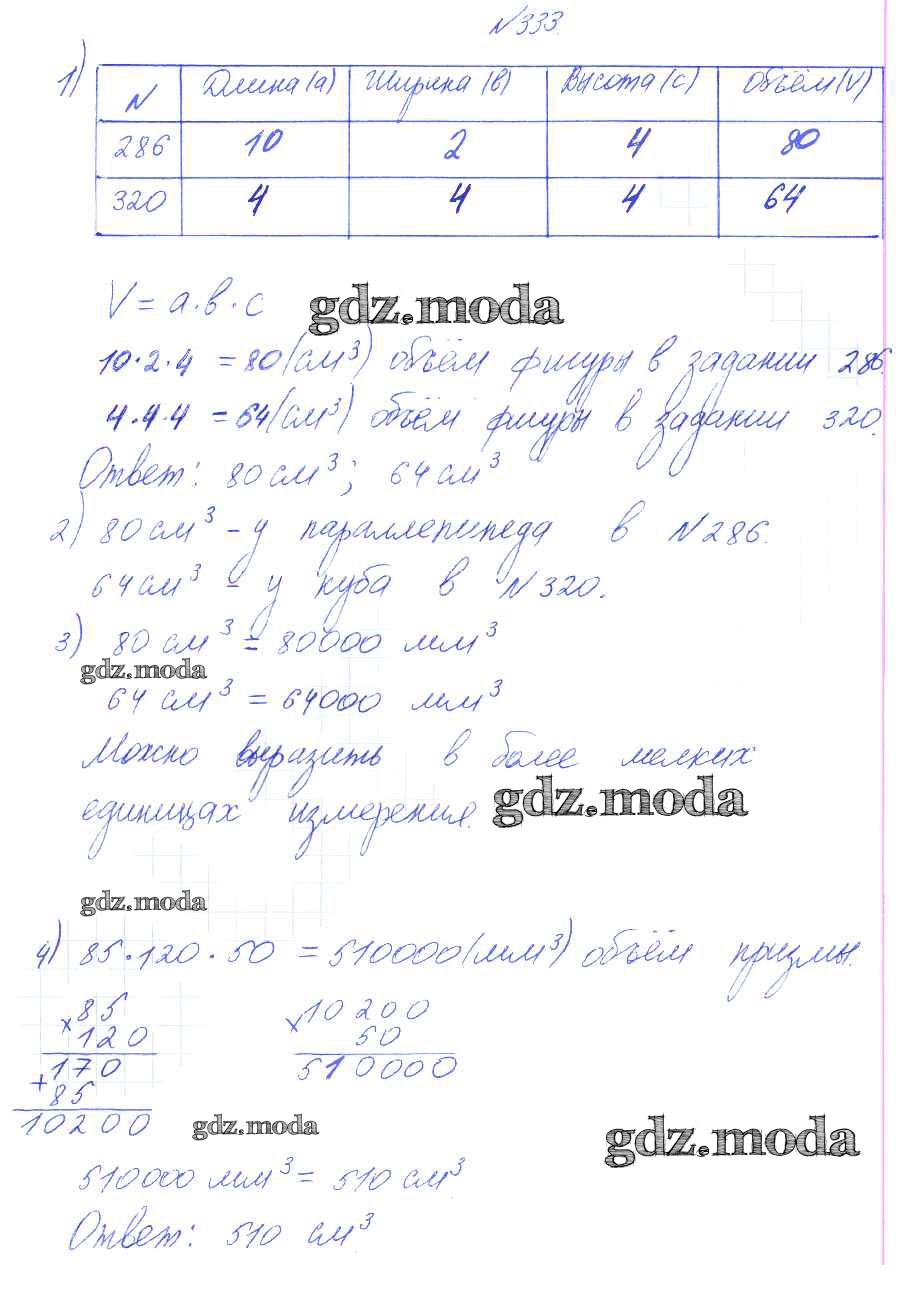 N333.
1)
N Длина(а) Ширина (в) Высота (с) Объём (V)
286 10 2 4 80
320 4 4 4 64
V = а·в·с gdz.moda
10·2·4 = 80(см³) объём фигуры в задании 286
4·4·4 = 64(см³) объём фигуры в задании 320.
Ответ: 80 см³; 64 см³
2) 80 см³ - у параллепипеда в N286.
64 см³ - у куба в N320.
3) 80 см³ = 80000 мм³
gdz.moda
64 см³ = 64000 мм³
Можно выразить в более мелких
единицах измерения. gdz.moda
gdz.moda
4) 85·120·50 = 510000(мм³) объём призмы.
×85 ×10200
120 50
+170 510000
85
10200 gdz.moda gdz.moda
510000 мм³ = 510 см³
Ответ: 510 см³